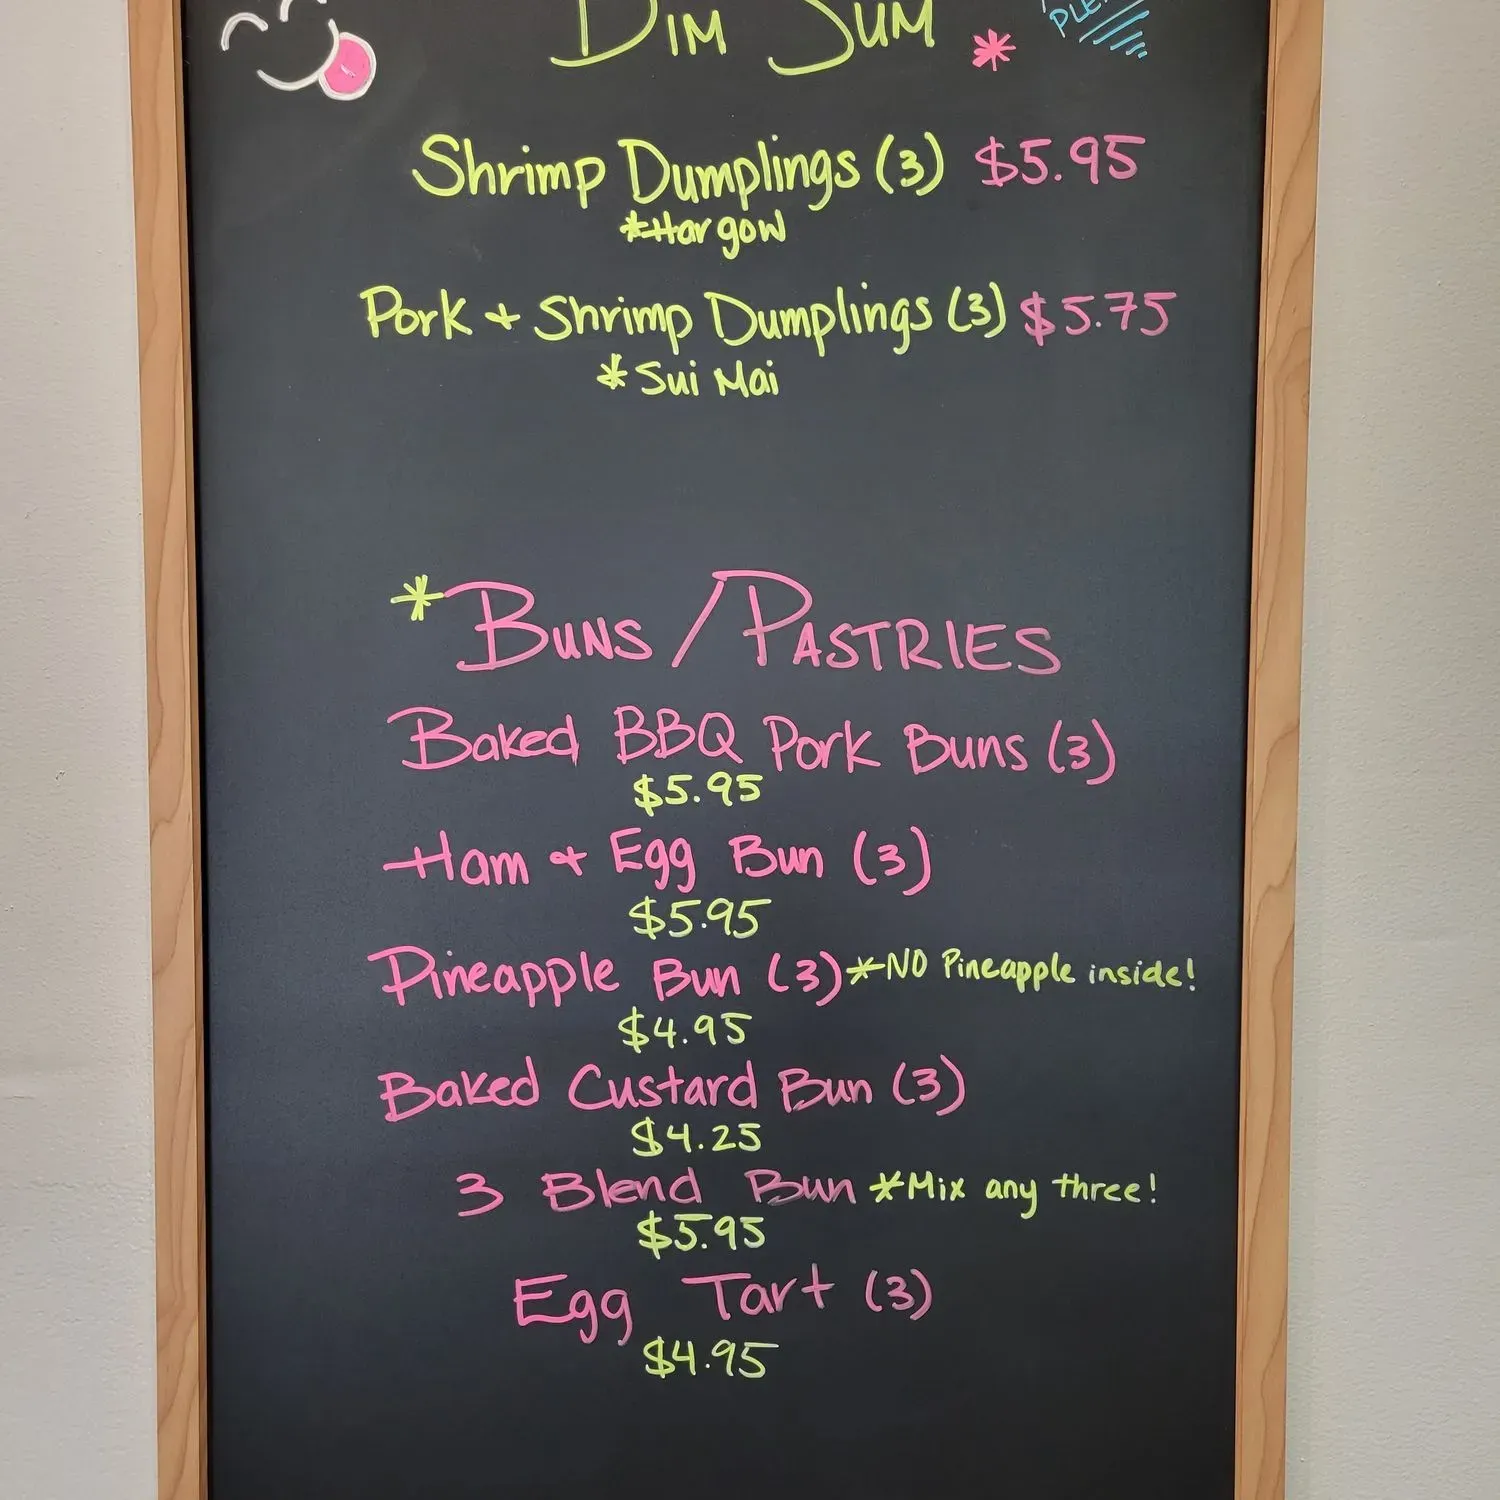 DIM SUM
Shrimp Dumplings (3) $5.95
*Har gow
Pork + Shrimp Dumplings (3) $5.75
* Sui Mai
*BUNS / PASTRIES
Baked BBQ Pork Buns (3)
$5.95
Ham + Egg Bun (3)
$5.95
Pineapple Bun (3) *NO Pineapple inside!
$4.95
Baked Custard Bun (3)
$4.25
3 Blend Bun *Mix any three!
$5.95
Egg Tart (3)
$4.95